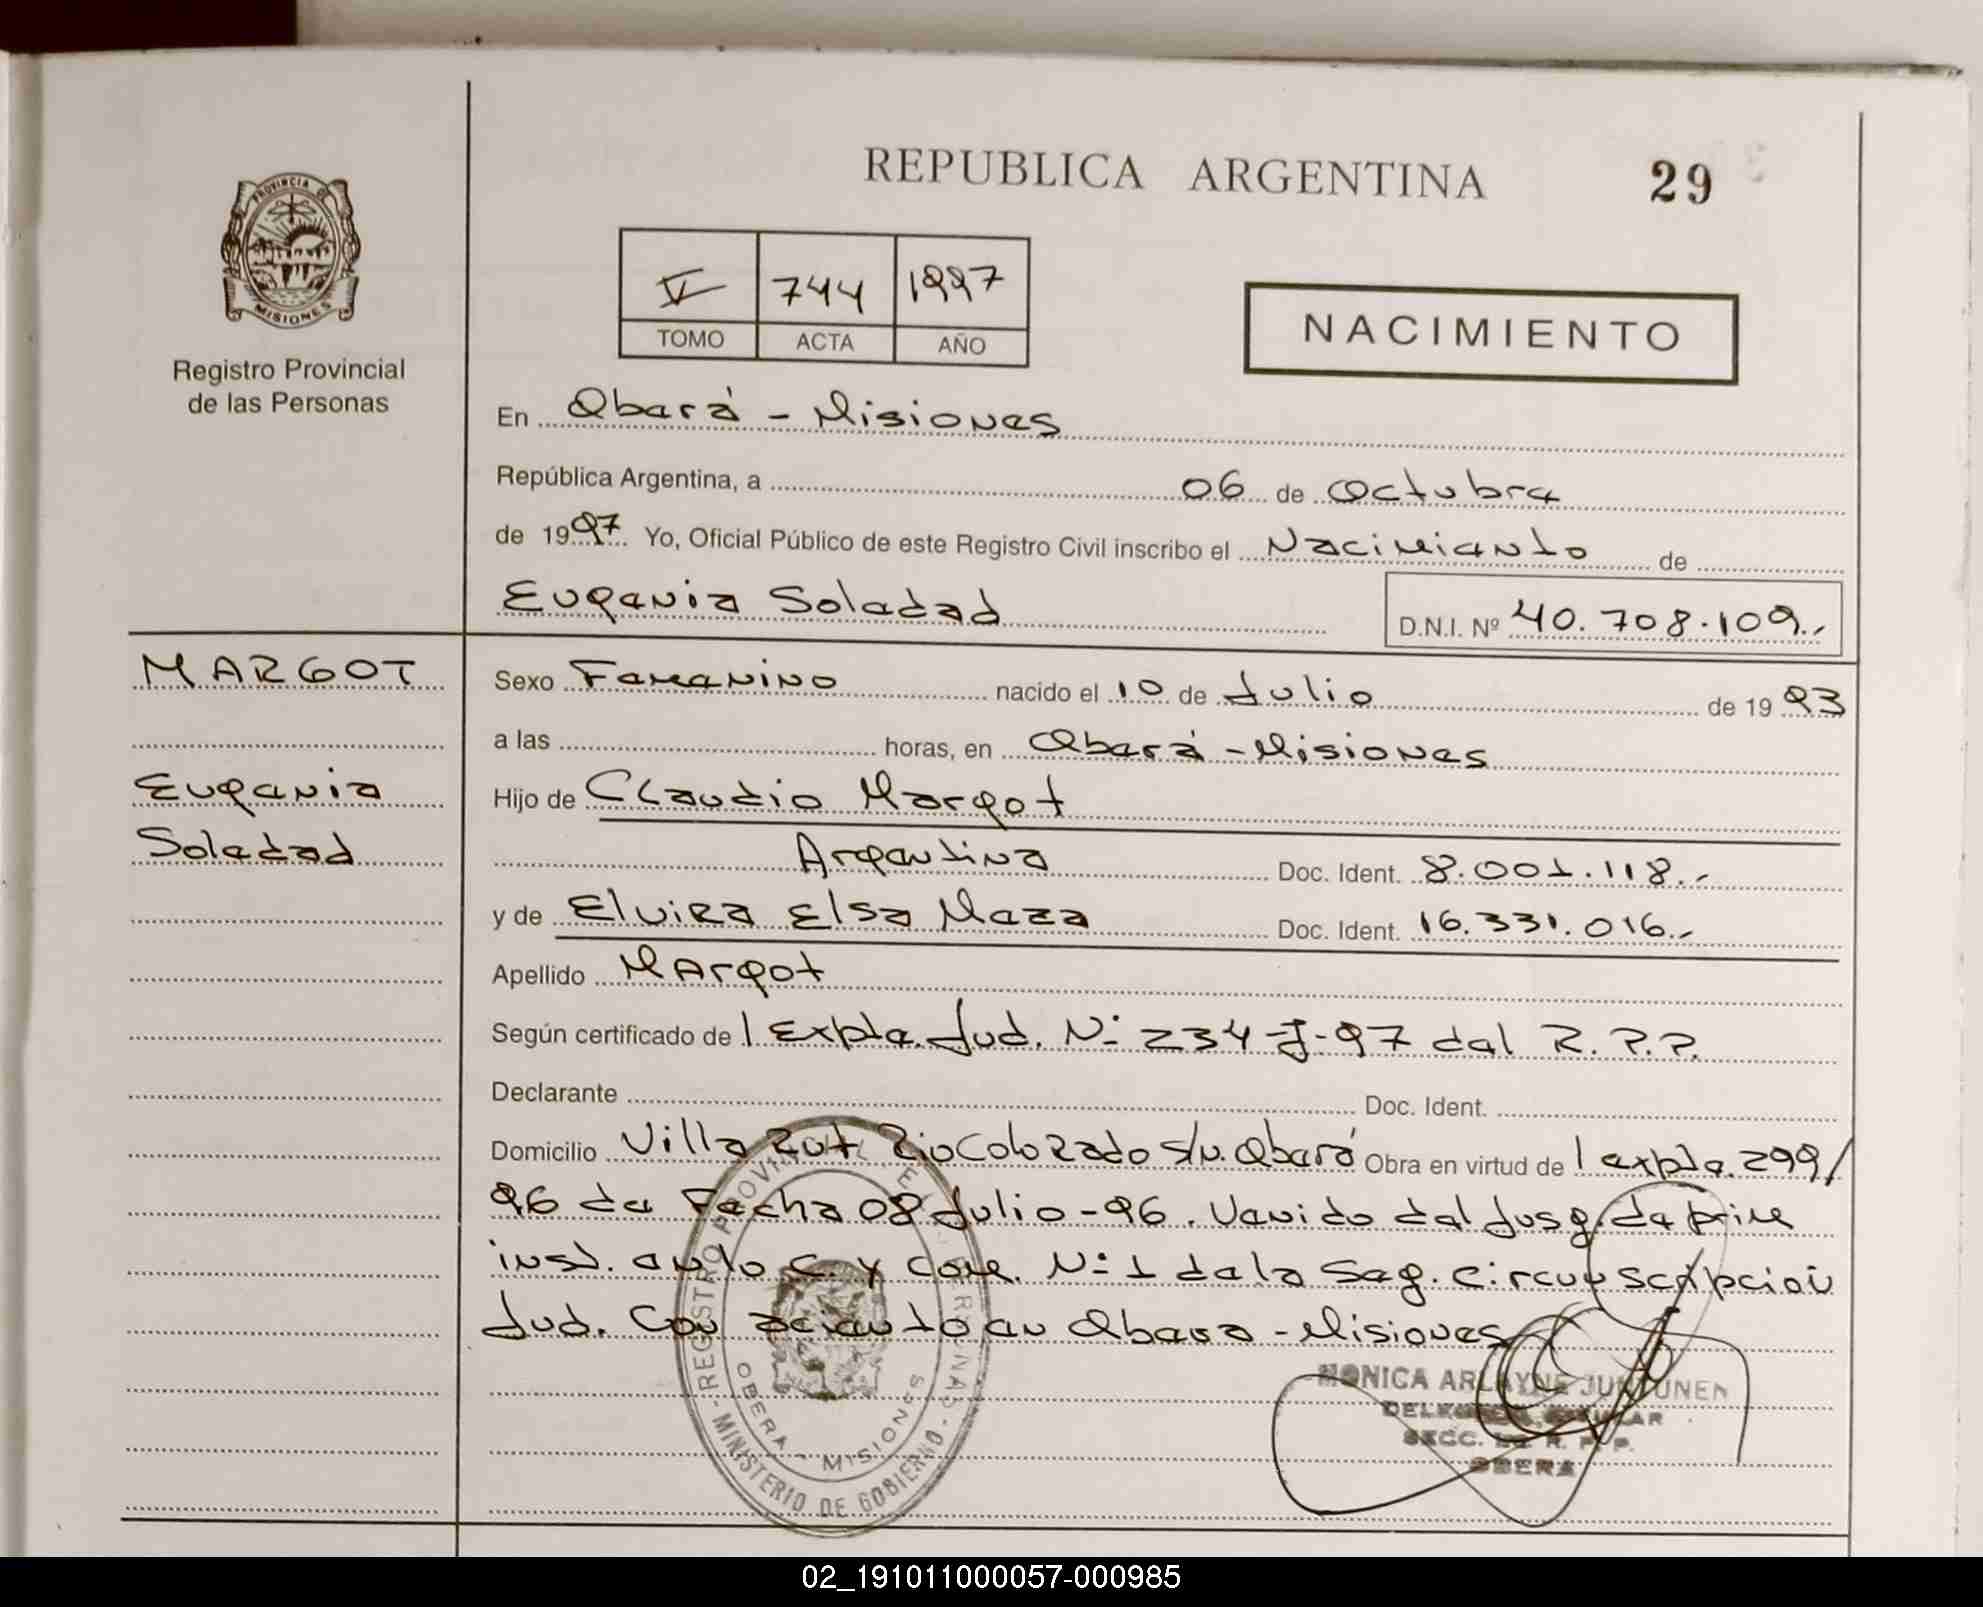 REPUBLICA ARGENTINA
29
PROVINCIA DE
MISIONES
Registro Provincial
de las Personas
V 744 1997
TOMO ACTA AÑO
NACIMIENTO
En Oberá - Misiones
República Argentina, a 06 de Octubre
de 1997 Yo, Oficial Público de este Registro Civil inscribo el Nacimiento de
Eugenia Soledad
D.N.I. Nº 40.708.109.-
MARGOT
Eugenia
Soledad
Sexo Femenino nacido el 10 de Julio de 1993
a las horas, en Oberá - Misiones
Hijo de Claudio Margot
Argentina Doc. Ident. 8.001.118.-
y de Elvira Elsa Meza Doc. Ident. 16.331.016.-
Apellido Margot
Según certificado de l Expte. Jud. Nº 234-J-97 del R.P.P.
Declarante Doc. Ident.
Domicilio Villa Rut Rio Colorado s/n. Oberá Obra en virtud de l expte. 299/
96 de Fecha 08 Julio-96. Venido del Jusg. de prim
inst. en lo C. y Com. Nº 1 de la Seg. circunscripcion
Jud. Con aciento en Obera - Misiones
REGISTRO PROVINCIAL DE LAS PERSONAS
MINISTERIO DE GOBIERNO
OBERA - MISIONES
MONICA ARLAYNE JUNTUNEN
SECC. R. P. P.
OBERA
02_191011000057-000985